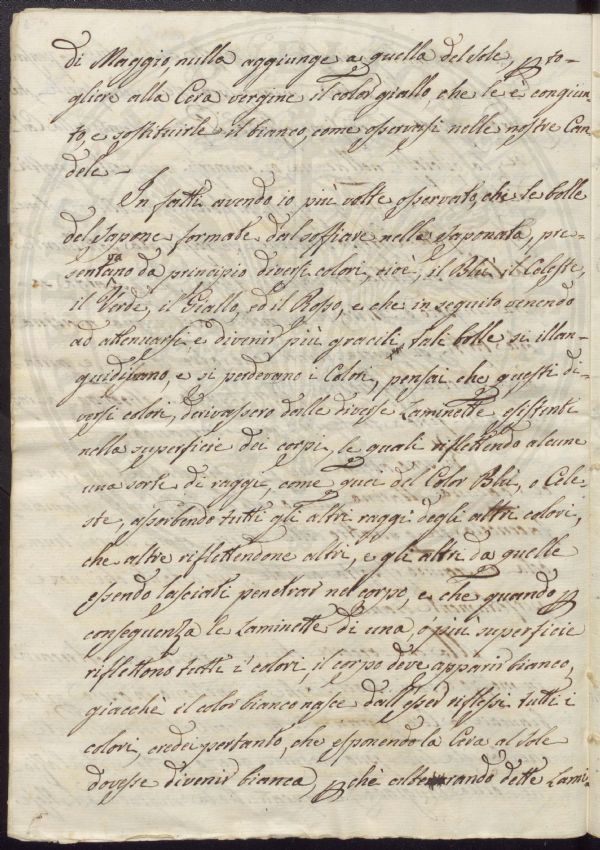 di Maggio, nulla aggiunge a quella del sole, p to-
gliere alla Cera vergine il color giallo, che le è congiun
to, e sostituirle il bianco, come osservasi nelle nostre Can
dele -
In fatti avendo io più volte osservato, che le bolle
del sapone formate dal soffiare nella saponata, pre-
sentavano da principio diversi colori, cioè, il Blù, il Celeste,
il Verde, il Giallo, ed il Rosso, e che in seguito venendo
ad attenuarsi e divenir più gracili, tali bolle si illan-
guidivano, e si perdevano i Colori, pensai che questi di-
versi colori, derivassero dalle diverse Laminette esistenti
nella superficie dei corpi, le quali riflettendo alcune
una sorte di raggi, come quei del Color Blù, o Cele
ste, assorbendo tutti gli altri raggi degli altri colori,
che altre riflettendone altri, e gli altri da quelle
essendo lasciati penetrar nel corpo, e che quando p
conseguenza le Laminette di una, o più superficie
riflettono tutti i colori, il corpo deve apparir bianco,
giacchè il color bianco nasce dall'esser riflessi tutti i
colori, credei pertanto, che esponendo la Cera al sole
dovesse divenir bianca, pchè alterando dette Lami